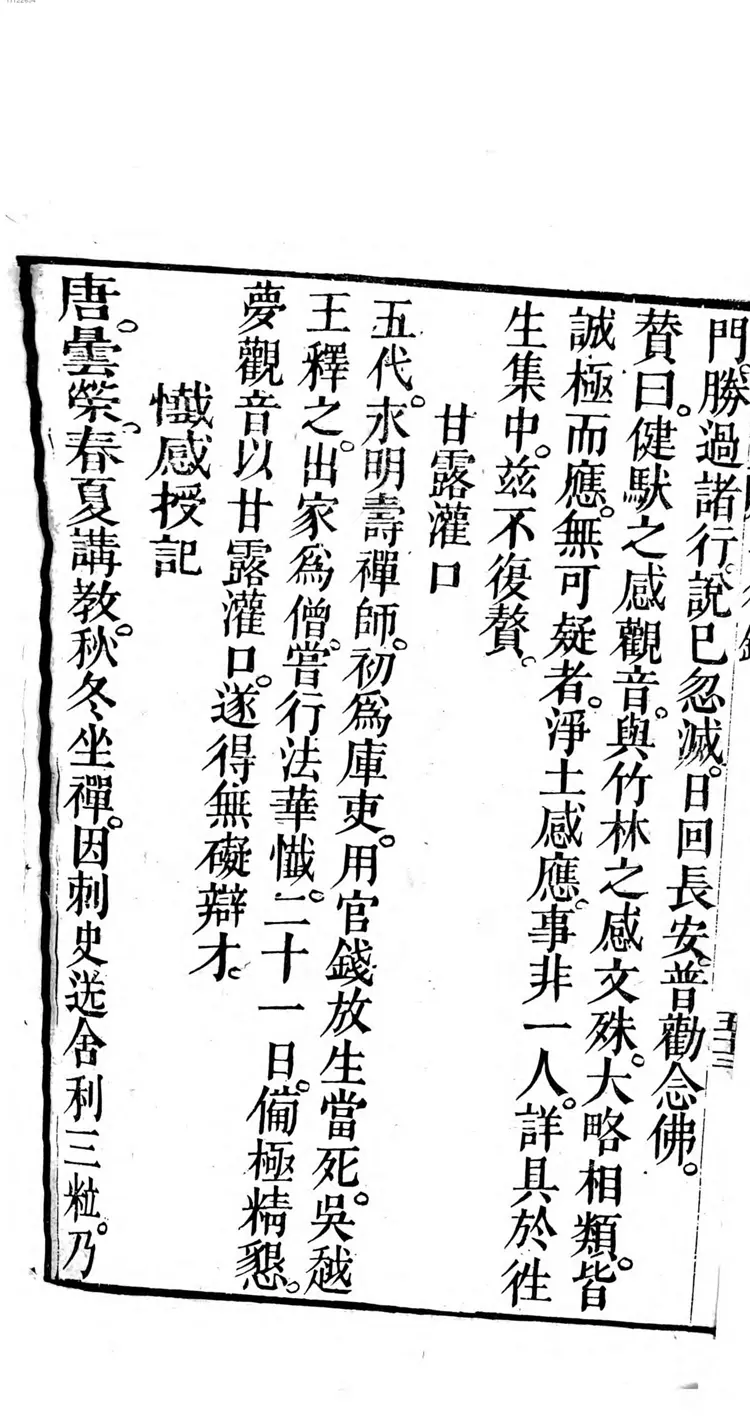 門。勝過諸行。說已忽滅。日回長安。普勸念佛。
贊曰。健馱之感觀音。與竹林之感文殊。大略相類。皆
誠極而應。無可疑者。淨土感應。事非一人。詳具於徃
生集中。茲不復贅。
甘露灌口
五代。永明壽禪師。初爲庫吏。用官錢放生當死。吳越
王釋之。出家爲僧。嘗行法華懺。二十一日。備極精懇。
夢觀音以甘露灌口。遂得無礙辯才。
懺感授記
唐。曇榮。春夏講教。秋冬坐禪。因刺史送舍利三粒。乃